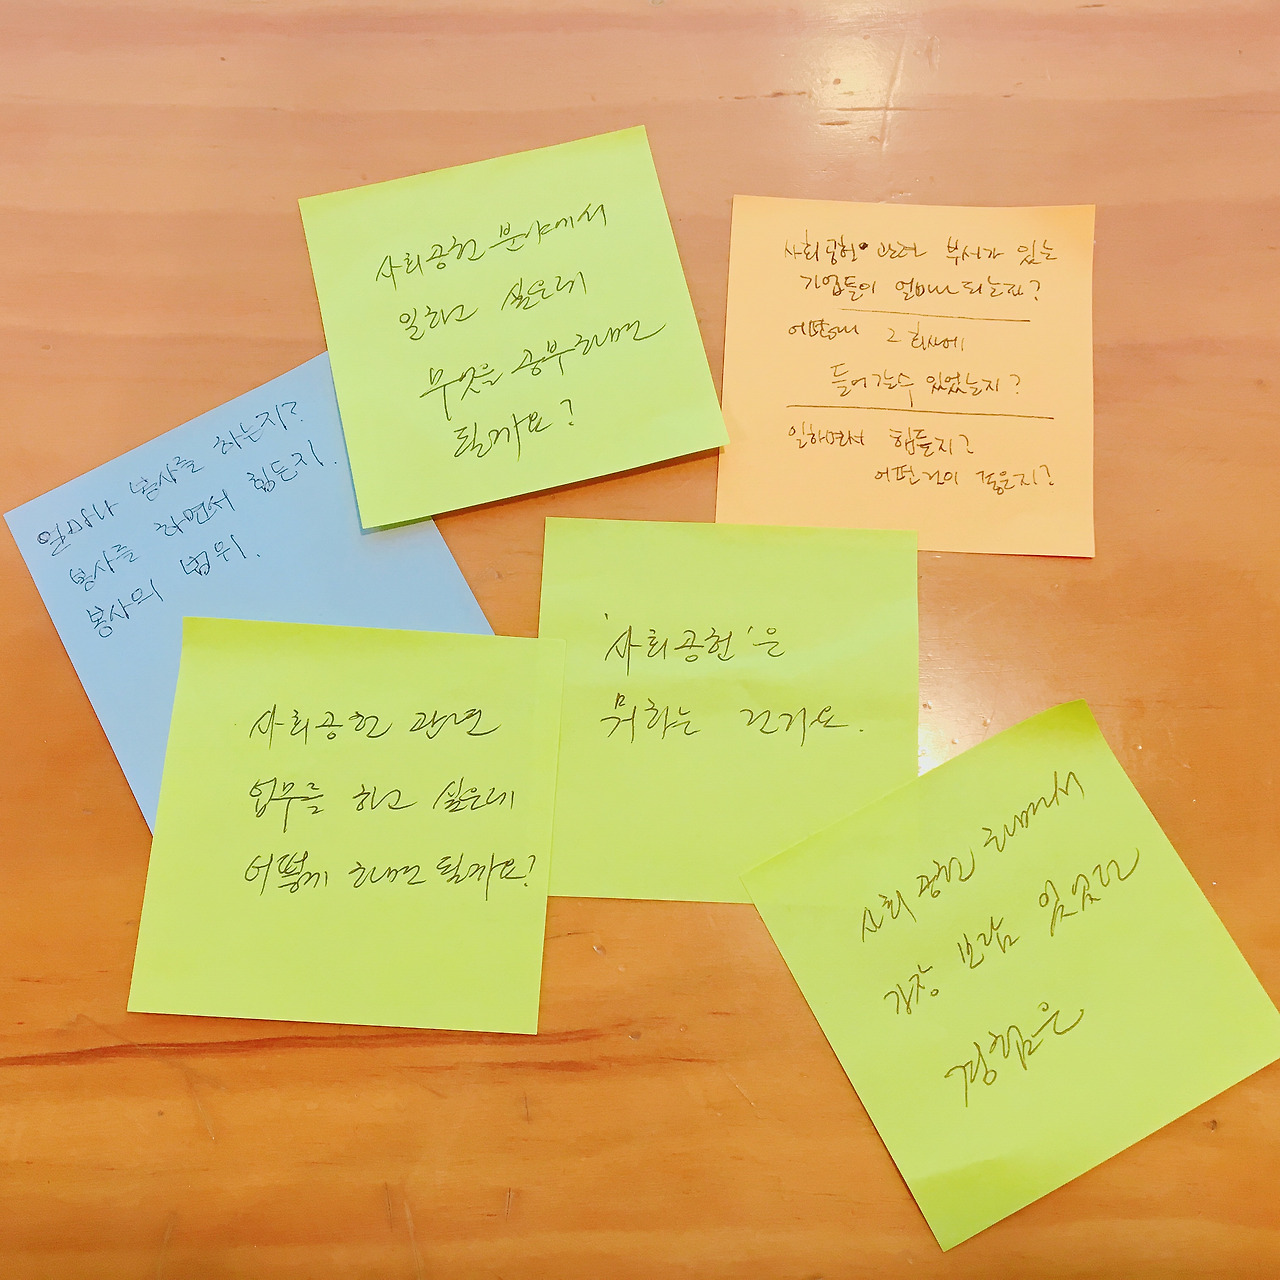 사회공헌 분야에서
일하고 싶은데
무엇을 공부하면
될까요?
사회공헌 관련 부서가 있는
기업들이 얼마나 되는지?
어떻게 그 회사에
들어갈수 있었는지?
일하면서 힘든지?
어떤것이 좋은지?
얼마나 봉사를 하는지?
봉사를 하면서 힘든지.
봉사의 범위.
'사회공헌'은
뭐하는 건가요.
사회공헌 관련
업무를 하고 싶은데
어떻게 하면 될까요?
사회공헌 하면서
가장 보람 있었던
경험은